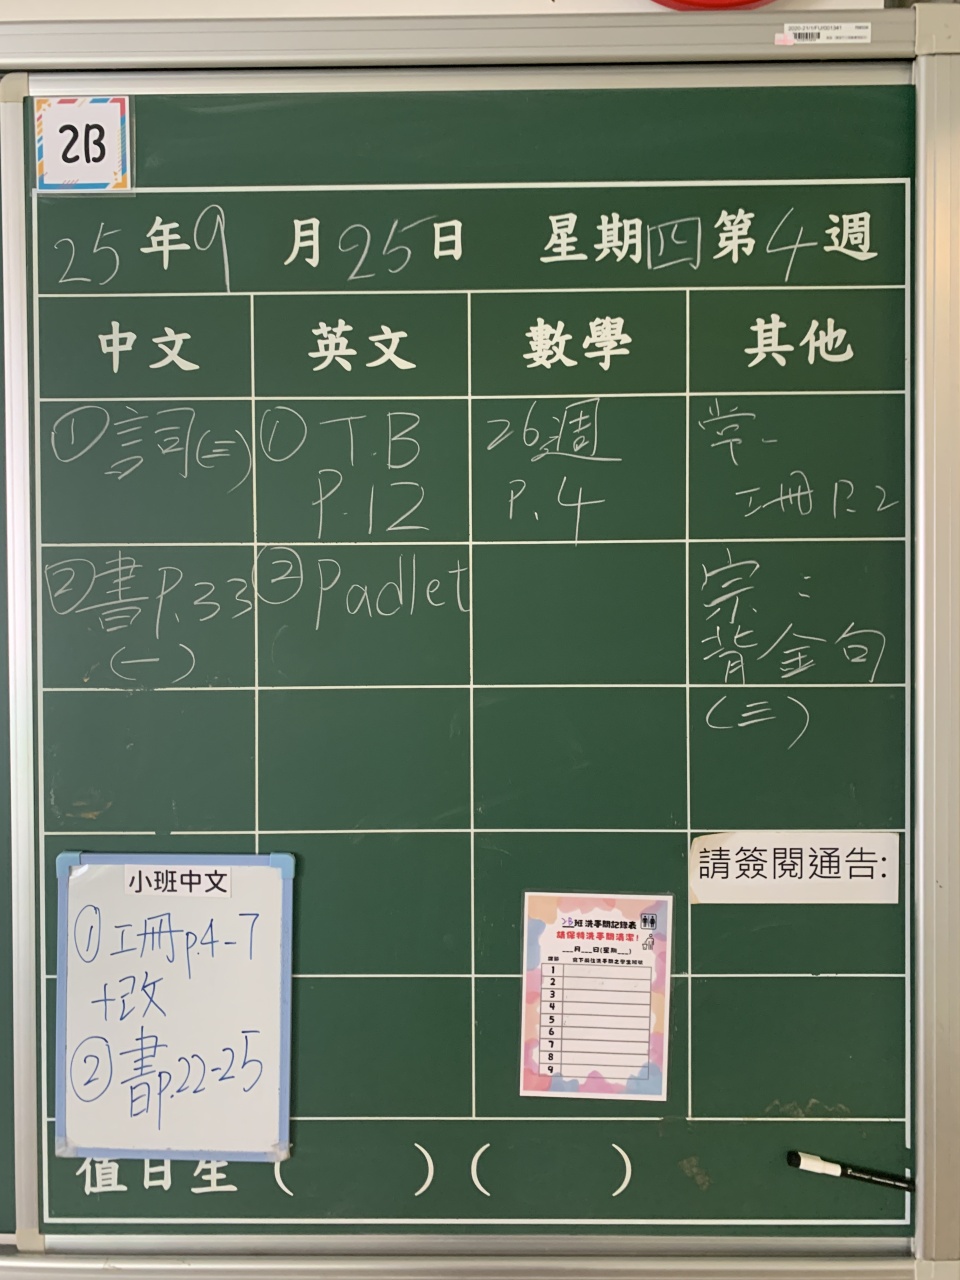 2B
25年9月25日 星期四第4週
中文 英文 數學 其他
①詞(三)
②書P.33
(一)
①T.B
P.12
②Padlet
26週
P.4
常-
工冊P.2
宗:
背金句
(三)
請簽閱通告:
小班中文
①工冊p.4-7
+改
②書p.22-25
2B班洗手間記錄表
請保持洗手間清潔!
___月___日(星期___)
1
2
3
4
5
6
7
8
9
值日生( )( )